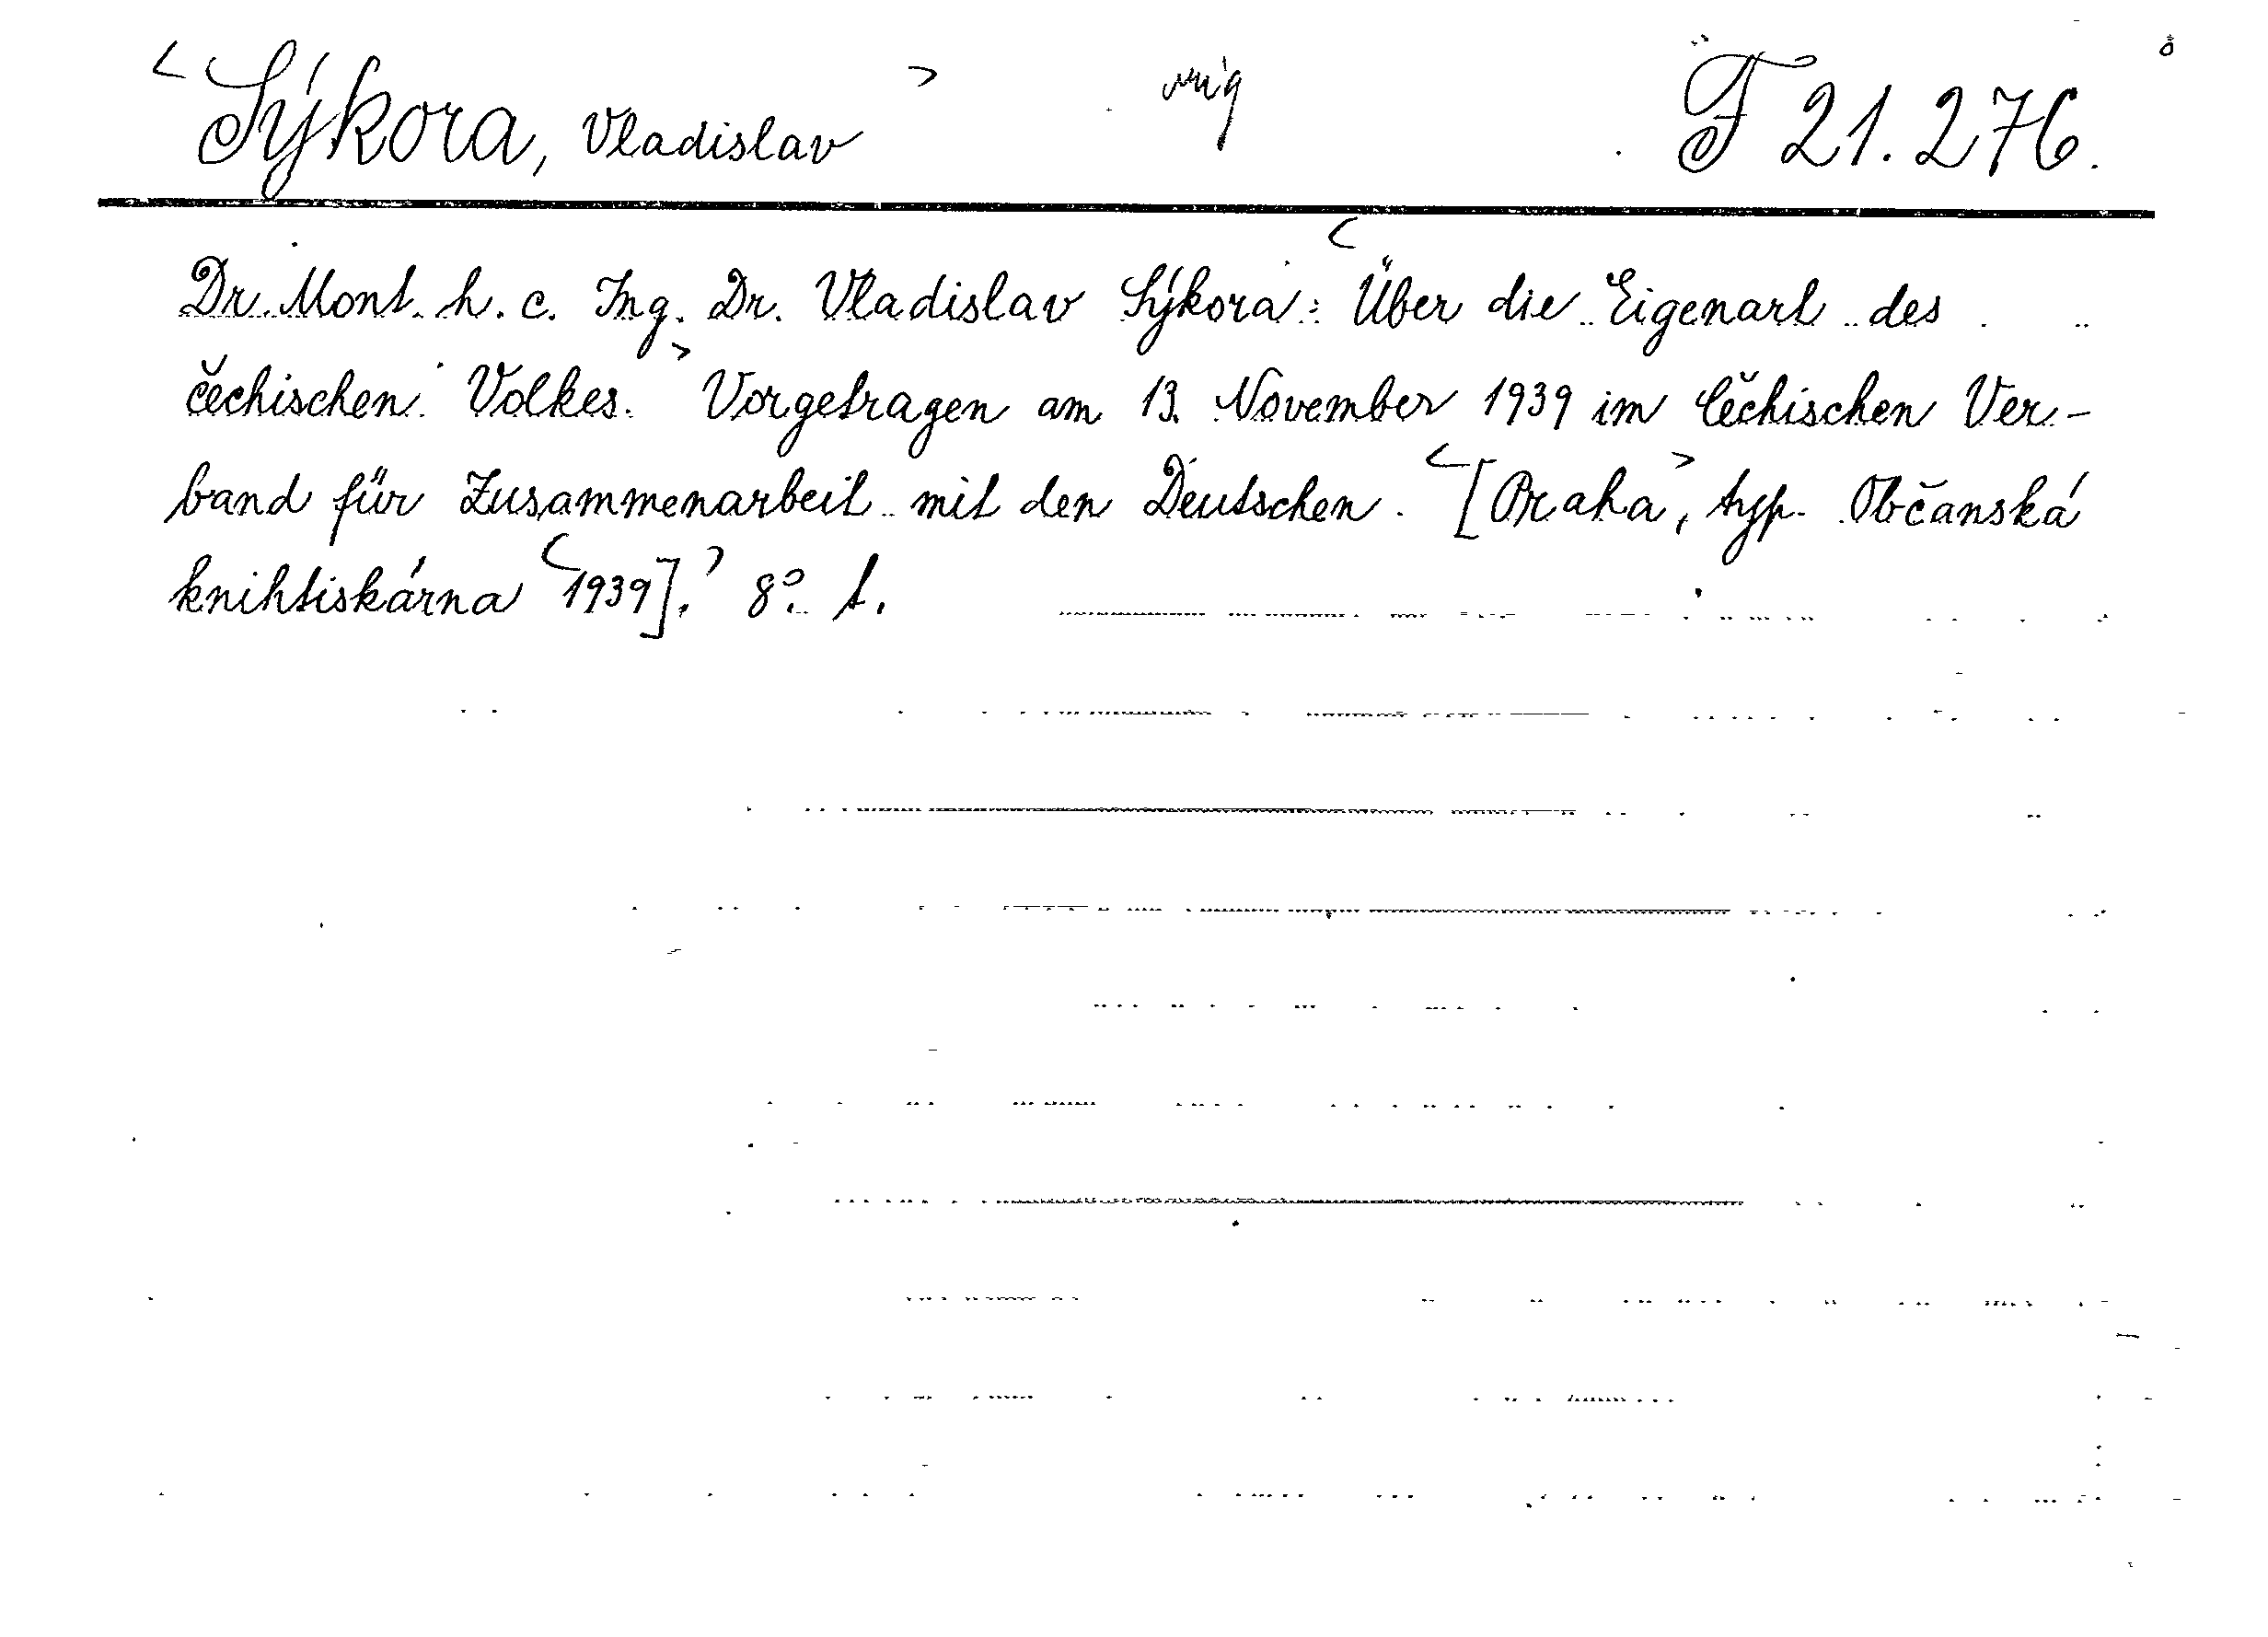 < Sýkora, Vladislav > F 21.276.
Dr. Mont. h. c. Ing. Dr. Vladislav Sýkora: < Über die Eigenart des
čechischen Volkes. > Vorgetragen am 13. November 1939 im Čechischen Ver-
band für Zusammenarbeit mit den Deutschen. < [Praha >, typ. Občanská
knihtiskárna < 1939]. > 8°. t.